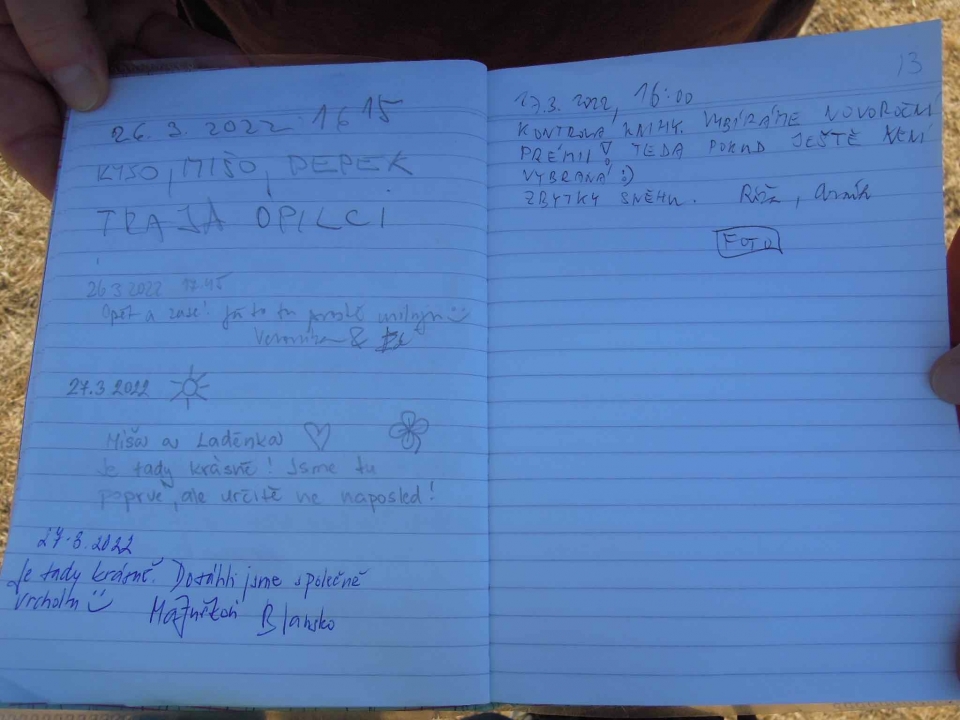 26.3.2022 16 15
KYSO, MIŠO, DEPEK
TRAJA OPILCI
26 3 2022 17.45
Opět a zase! Já to tu prostě miluju
Veronika &
27.3 2022
Míša a Laděnka
Je tady krásně! Jsme tu
poprvé, ale určitě ne naposled!
27.3.2022
Je tady krásně. Dotáhli jsme společně
vrcholu
Blansko
13
27.3. 2022, 16:00
KONTROLA KNIHY. VYBÍRÁME NOVOROČNÍ
PRÉMII! TEDA POKUD JEŠTĚ NENÍ
VYBRANÁ :)
ZBYTKY SNĚHU. Růža,
FOTO